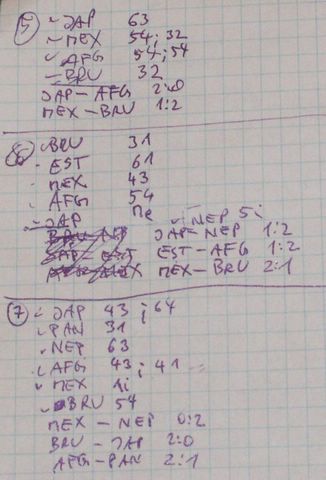 5 JAP 63
MEX 54; 32
AFG 54; 54
BRU 32
JAP-AFG 2:0
MEX-BRU 1:2
BRU 31
EST 61
MEX 43
AFG 54
JAP ne
NEP 5i
JAP-NEP 1:2
EST-AFG 1:2
MEX-BRU 2:1
7 JAP 43; 64
PAN 31
NEP 63
AFG 43; 41
MEX 1i
BRU 54
MEX - NEP 0:2
BRU - JAP 2:0
AFG-PAN 2:1